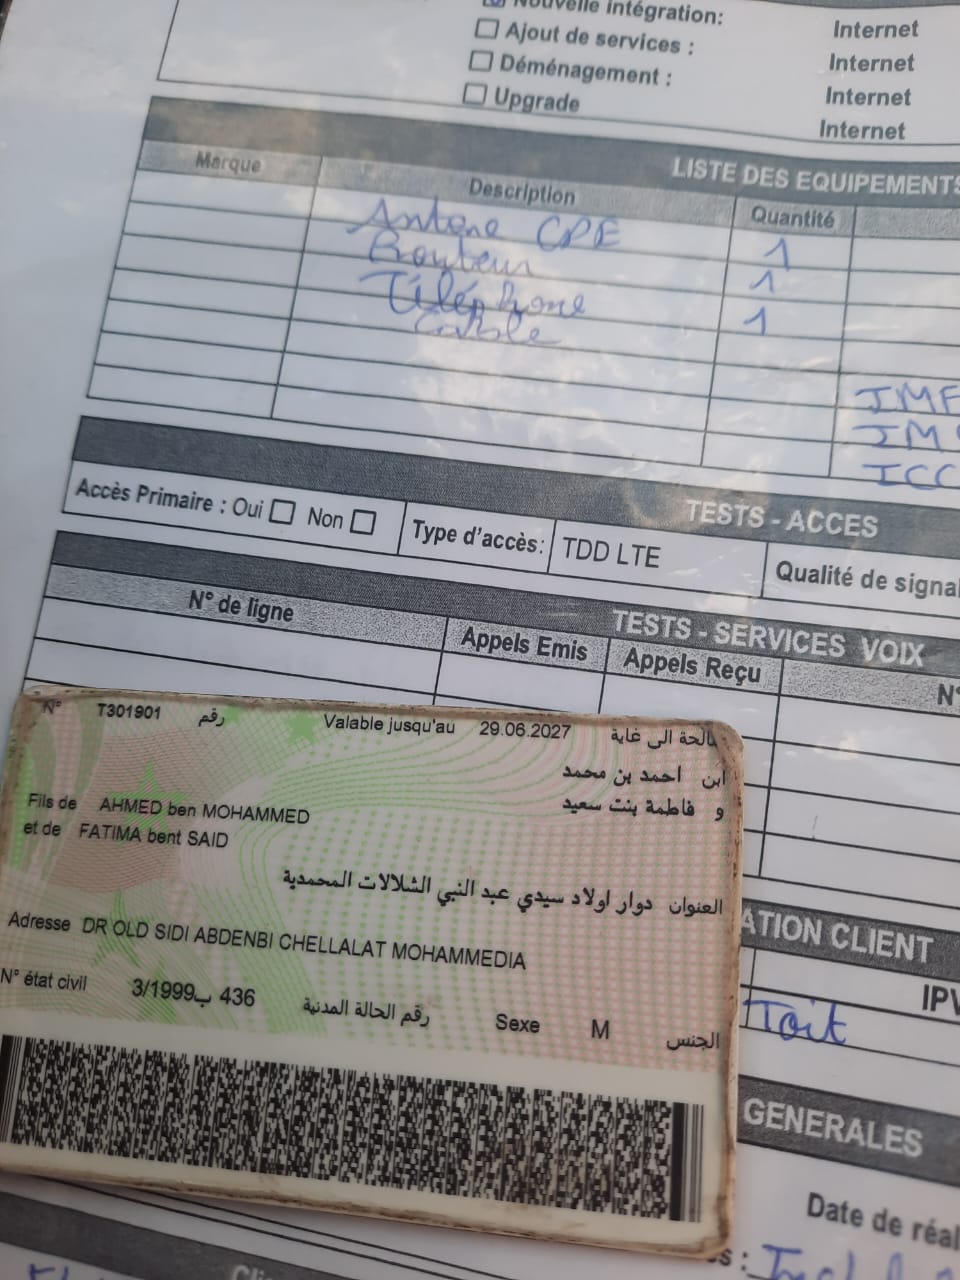 Nouvelle intégration: Internet
Ajout de services : Internet
Déménagement : Internet
Upgrade Internet
LISTE DES EQUIPEMENTS
Marque Description Quantité
Antene CPE 1
Routeur 1
Téléphone 1
Cable
IME
IM
ICC
TESTS - ACCES
Accès Primaire : Oui Non Type d'accès: TDD LTE Qualité de signal
TESTS - SERVICES VOIX
N° de ligne Appels Emis Appels Reçu N°
N° T301901 رقم Valable jusqu'au 29.06.2027 صالحة الى غاية
ابن احمد بن محمد
Fils de AHMED ben MOHAMMED
و فاطمة بنت سعيد
et de FATIMA bent SAID
العنوان دوار اولاد سيدي عبد النبي الشلالات المحمدية
Adresse DR OLD SIDI ABDENBI CHELLALAT MOHAMMEDIA
N° état civil 436 ب3/1999 رقم الحالة المدنية Sexe M الجنس
ATION CLIENT
IPV
Toit
GENERALES
Date de réal